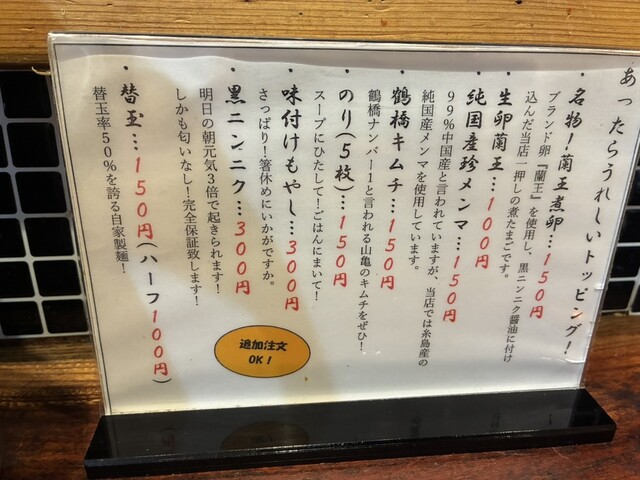 あったらうれしいトッピング！
・名物！蘭王煮卵…150円
ブランド卵『蘭王』を使用し、黒ニンニク醤油に付け
込んだ当店一押しの煮たまごです。
・生卵蘭王…100円
・純国産珍メンマ…150円
99%中国産と言われていますが、当店では糸島産の
純国産メンマを使用しています。
・鶴橋キムチ…150円
鶴橋ナンバー1と言われる山亀のキムチをぜひ！
・のり(5枚)…150円
スープにひたして！ごはんにまいて！
・味付けもやし…300円
さっぱり！箸休めにいかがですか。
・黒ニンニク…300円
明日の朝元気3倍で起きられます！
しかも匂いなし！完全保証致します！
・替玉…150円(ハーフ100円)
替玉率50%を誇る自家製麺！
追加注文
OK！